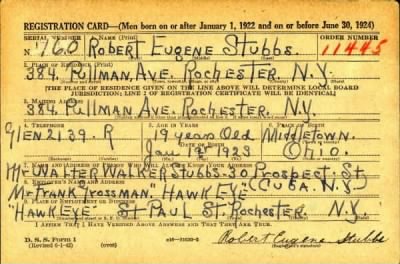 REGISTRATION CARD—(Men born on or after January 1, 1922 and on or before June 30, 1924)
SERIAL NUMBER 1. NAME (Print) ORDER NUMBER
N 760 Robert Eugene Stubbs. 11445
(First) (Middle) (Last)
2. PLACE OF RESIDENCE (Print)
384 Pullman Ave. Rochester. N.Y.
[THE PLACE OF RESIDENCE GIVEN ON THE LINE ABOVE WILL DETERMINE LOCAL BOARD
JURISDICTION; LINE 2 OF REGISTRATION CERTIFICATE WILL BE IDENTICAL]
3. MAILING ADDRESS
384 Pullman Ave. Rochester. N.Y.
4. TELEPHONE 5. AGE IN YEARS 6. PLACE OF BIRTH
Glen 2189. R 19 years Old Middletown.
DATE OF BIRTH
Jan 1st 1923 Ohio.
7. NAME AND ADDRESS OF PERSON WHO WILL ALWAYS KNOW YOUR ADDRESS
Mr Walter Walker Stubbs. 30 Prospect. St
8. EMPLOYER'S NAME AND ADDRESS
Mr Fran Grossman "Hawk Eye" (Cuba. N.Y.)
9. PLACE OF EMPLOYMENT OR BUSINESS
"Hawk Eye" St Paul St. Rochester. N.Y.
I AFFIRM THAT I HAVE VERIFIED ABOVE ANSWERS AND THAT THEY ARE TRUE.
D. S. S. Form 1
(Revised 6-1-42) (over) Robert Eugene Stubbs